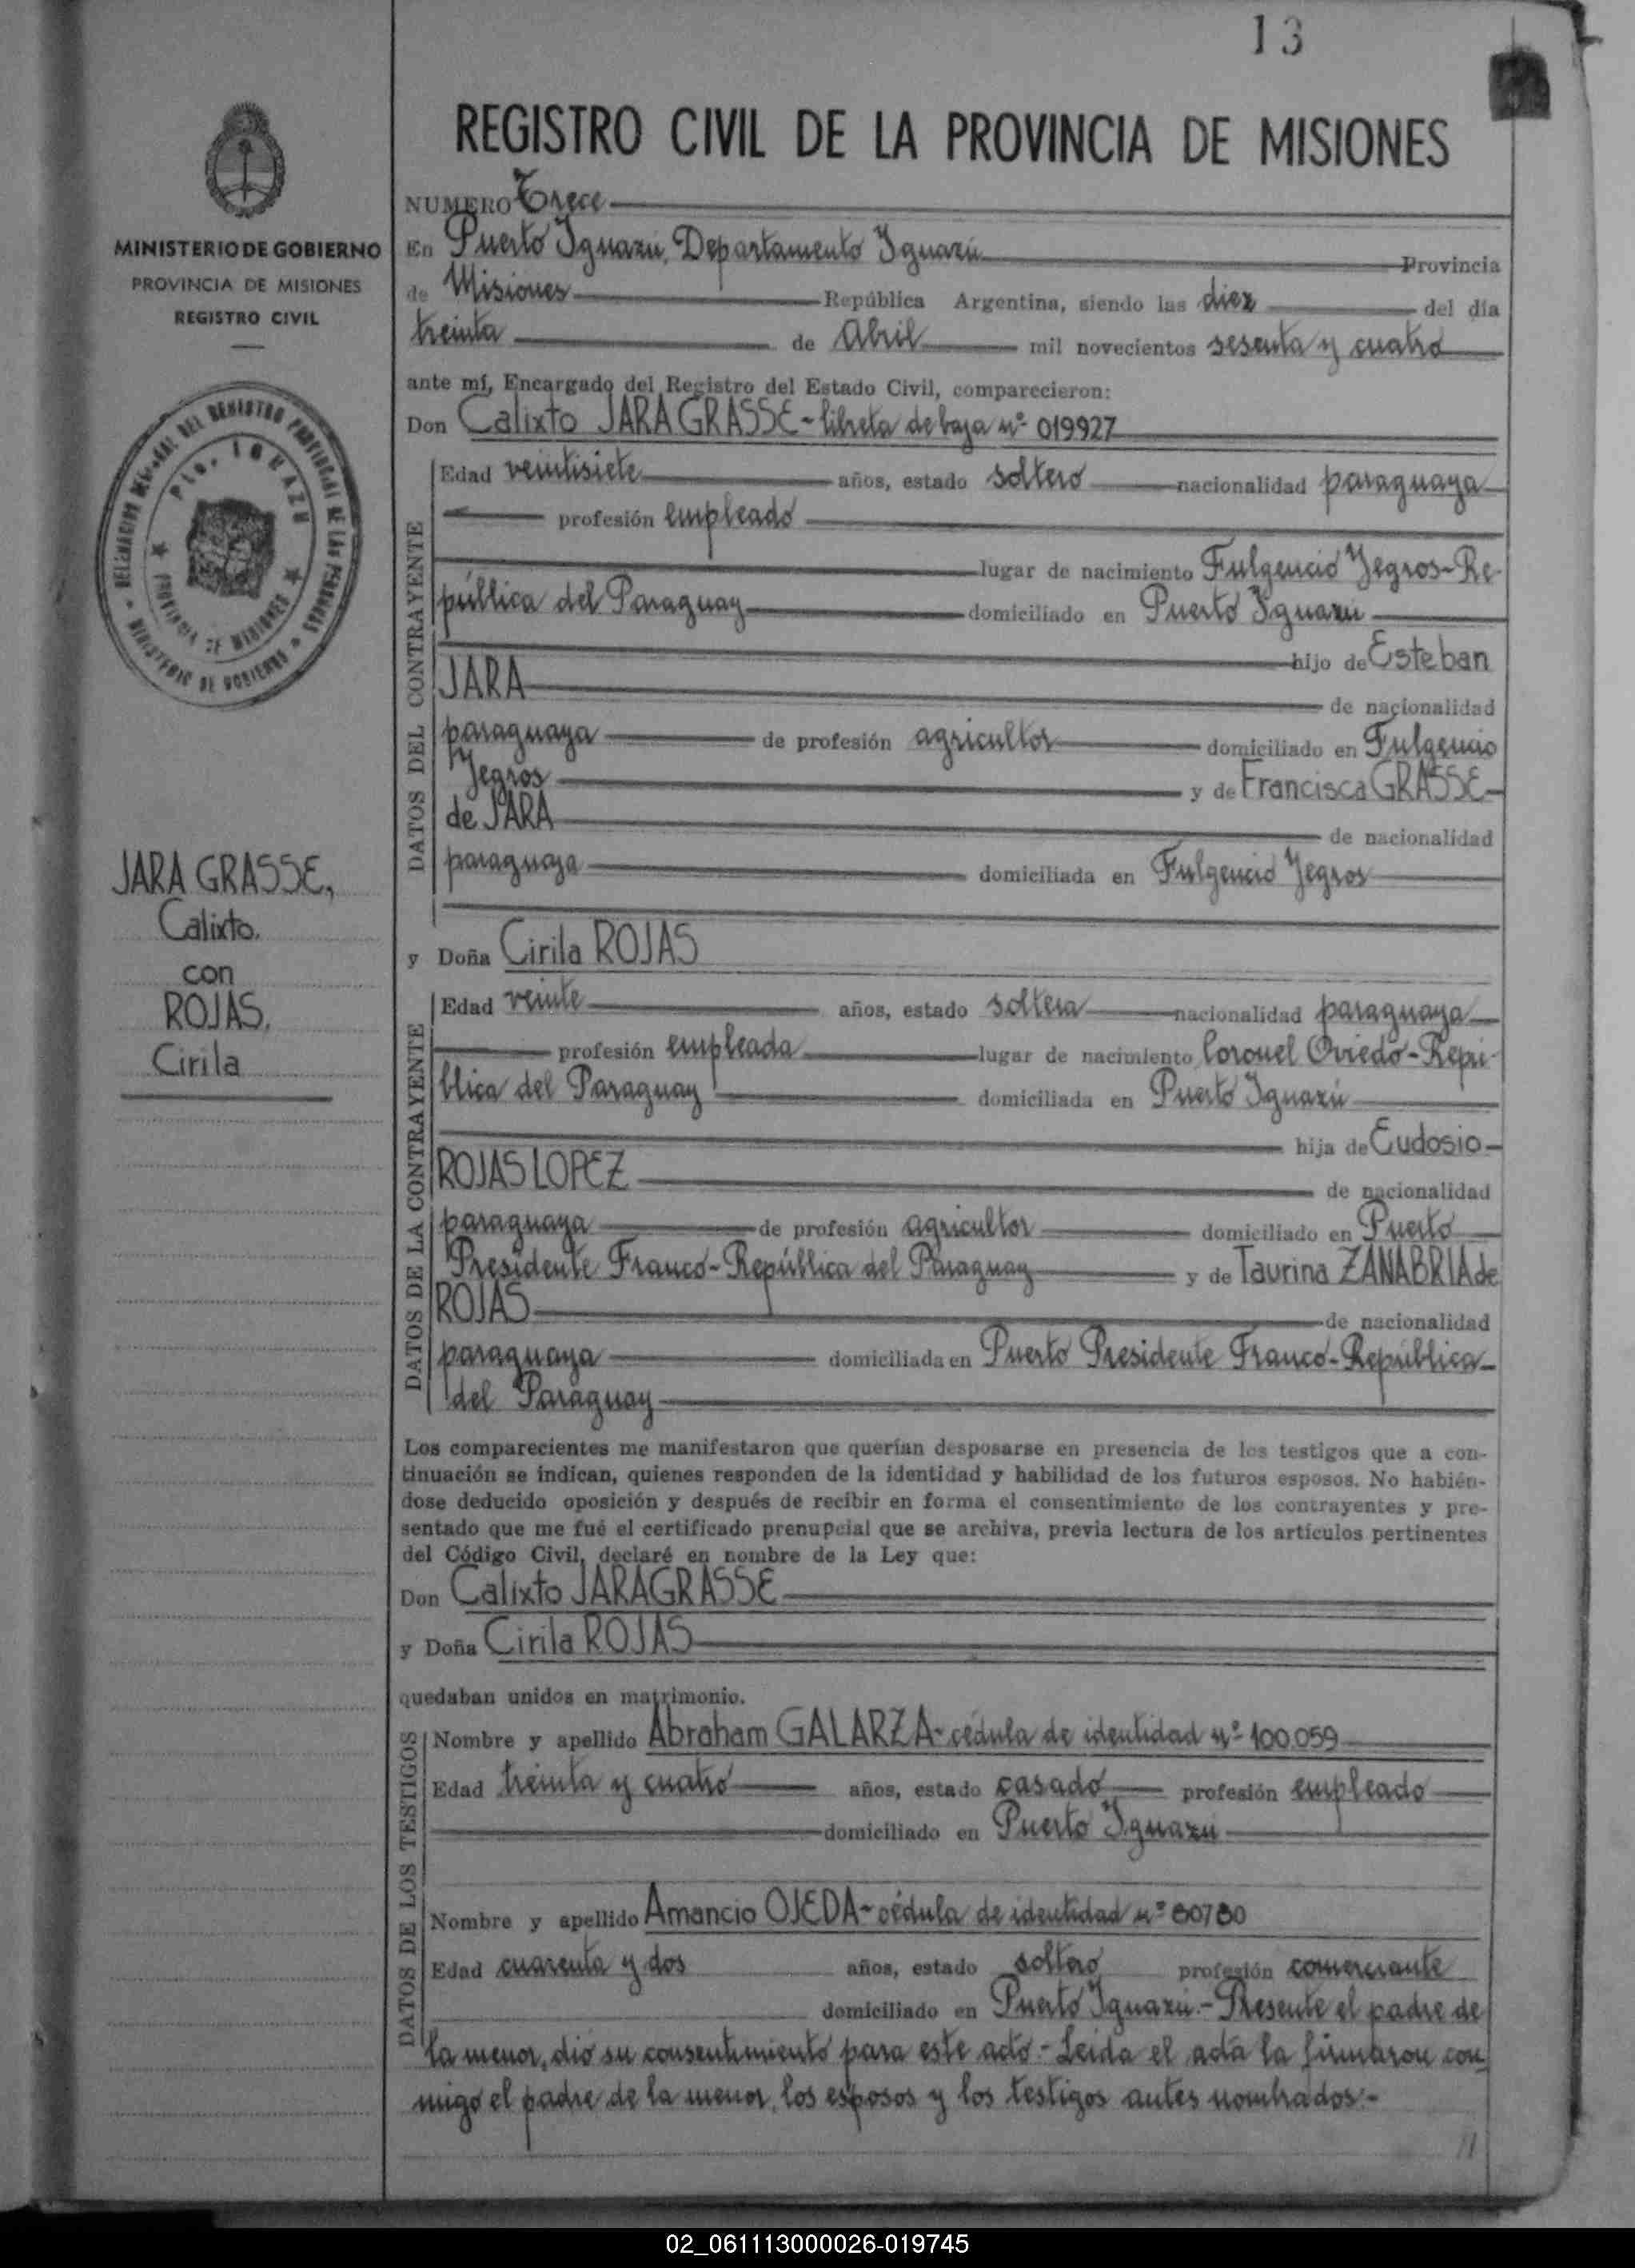 13
REGISTRO CIVIL DE LA PROVINCIA DE MISIONES
MINISTERIO DE GOBIERNO
PROVINCIA DE MISIONES
REGISTRO CIVIL
PTO. IGUAZU
PROVINCIA DE MISIONES
MINISTERIO DE GOBIERNO
JARA GRASSE,
Calixto.
con
ROJAS,
Cirila
NUMERO Trece
En Puerto Iguazú, Departamento Iguazú Provincia
de Misiones República Argentina, siendo las diez del día
treinta de Abril mil novecientos sesenta y cuatro
ante mí, Encargado del Registro del Estado Civil, comparecieron:
Don Calixto JARA GRASSE - libreta de baja nº 019927
DATOS DEL CONTRAYENTE
Edad veintisiete años, estado soltero nacionalidad paraguaya
profesión empleado
lugar de nacimiento Fulgencio Yegros - Re-
pública del Paraguay domiciliado en Puerto Iguazú
hijo de Esteban
JARA de nacionalidad
paraguaya de profesión agricultor domiciliado en Fulgencio
Yegros y de Francisca GRASSE
de JARA de nacionalidad
paraguaya domiciliada en Fulgencio Yegros
y Doña Cirila ROJAS
DATOS DE LA CONTRAYENTE
Edad veinte años, estado soltera nacionalidad paraguaya
profesión empleada lugar de nacimiento Coronel Oviedo - Repú-
blica del Paraguay domiciliada en Puerto Iguazú
hija de Eudosio
ROJAS LOPEZ de nacionalidad
paraguaya de profesión agricultor domiciliado en Puerto
Presidente Franco - República del Paraguay y de Taurina ZANABRIA de
ROJAS de nacionalidad
paraguaya domiciliada en Puerto Presidente Franco - República
del Paraguay
Los comparecientes me manifestaron que querían desposarse en presencia de los testigos que a con-
tinuación se indican, quienes responden de la identidad y habilidad de los futuros esposos. No habién-
dose deducido oposición y después de recibir en forma el consentimiento de los contrayentes y pre-
sentado que me fué el certificado prenupcial que se archiva, previa lectura de los artículos pertinentes
del Código Civil, declaré en nombre de la Ley que:
Don Calixto JARA GRASSE
y Doña Cirila ROJAS
quedaban unidos en matrimonio.
DATOS DE LOS TESTIGOS
Nombre y apellido Abraham GALARZA - cédula de identidad nº 100.059
Edad treinta y cuatro años, estado casado profesión empleado
domiciliado en Puerto Iguazú
Nombre y apellido Amancio OJEDA - cédula de identidad nº
Edad cuarenta y dos años, estado soltero profesión comerciante
domiciliado en Puerto Iguazú.- Presente el padre de
la menor, dió su consentimiento para este acto.- Leída el acta la firmaron con-
migo el padre de la menor, los esposos y los testigos antes nombrados.-
02_061113000026-019745